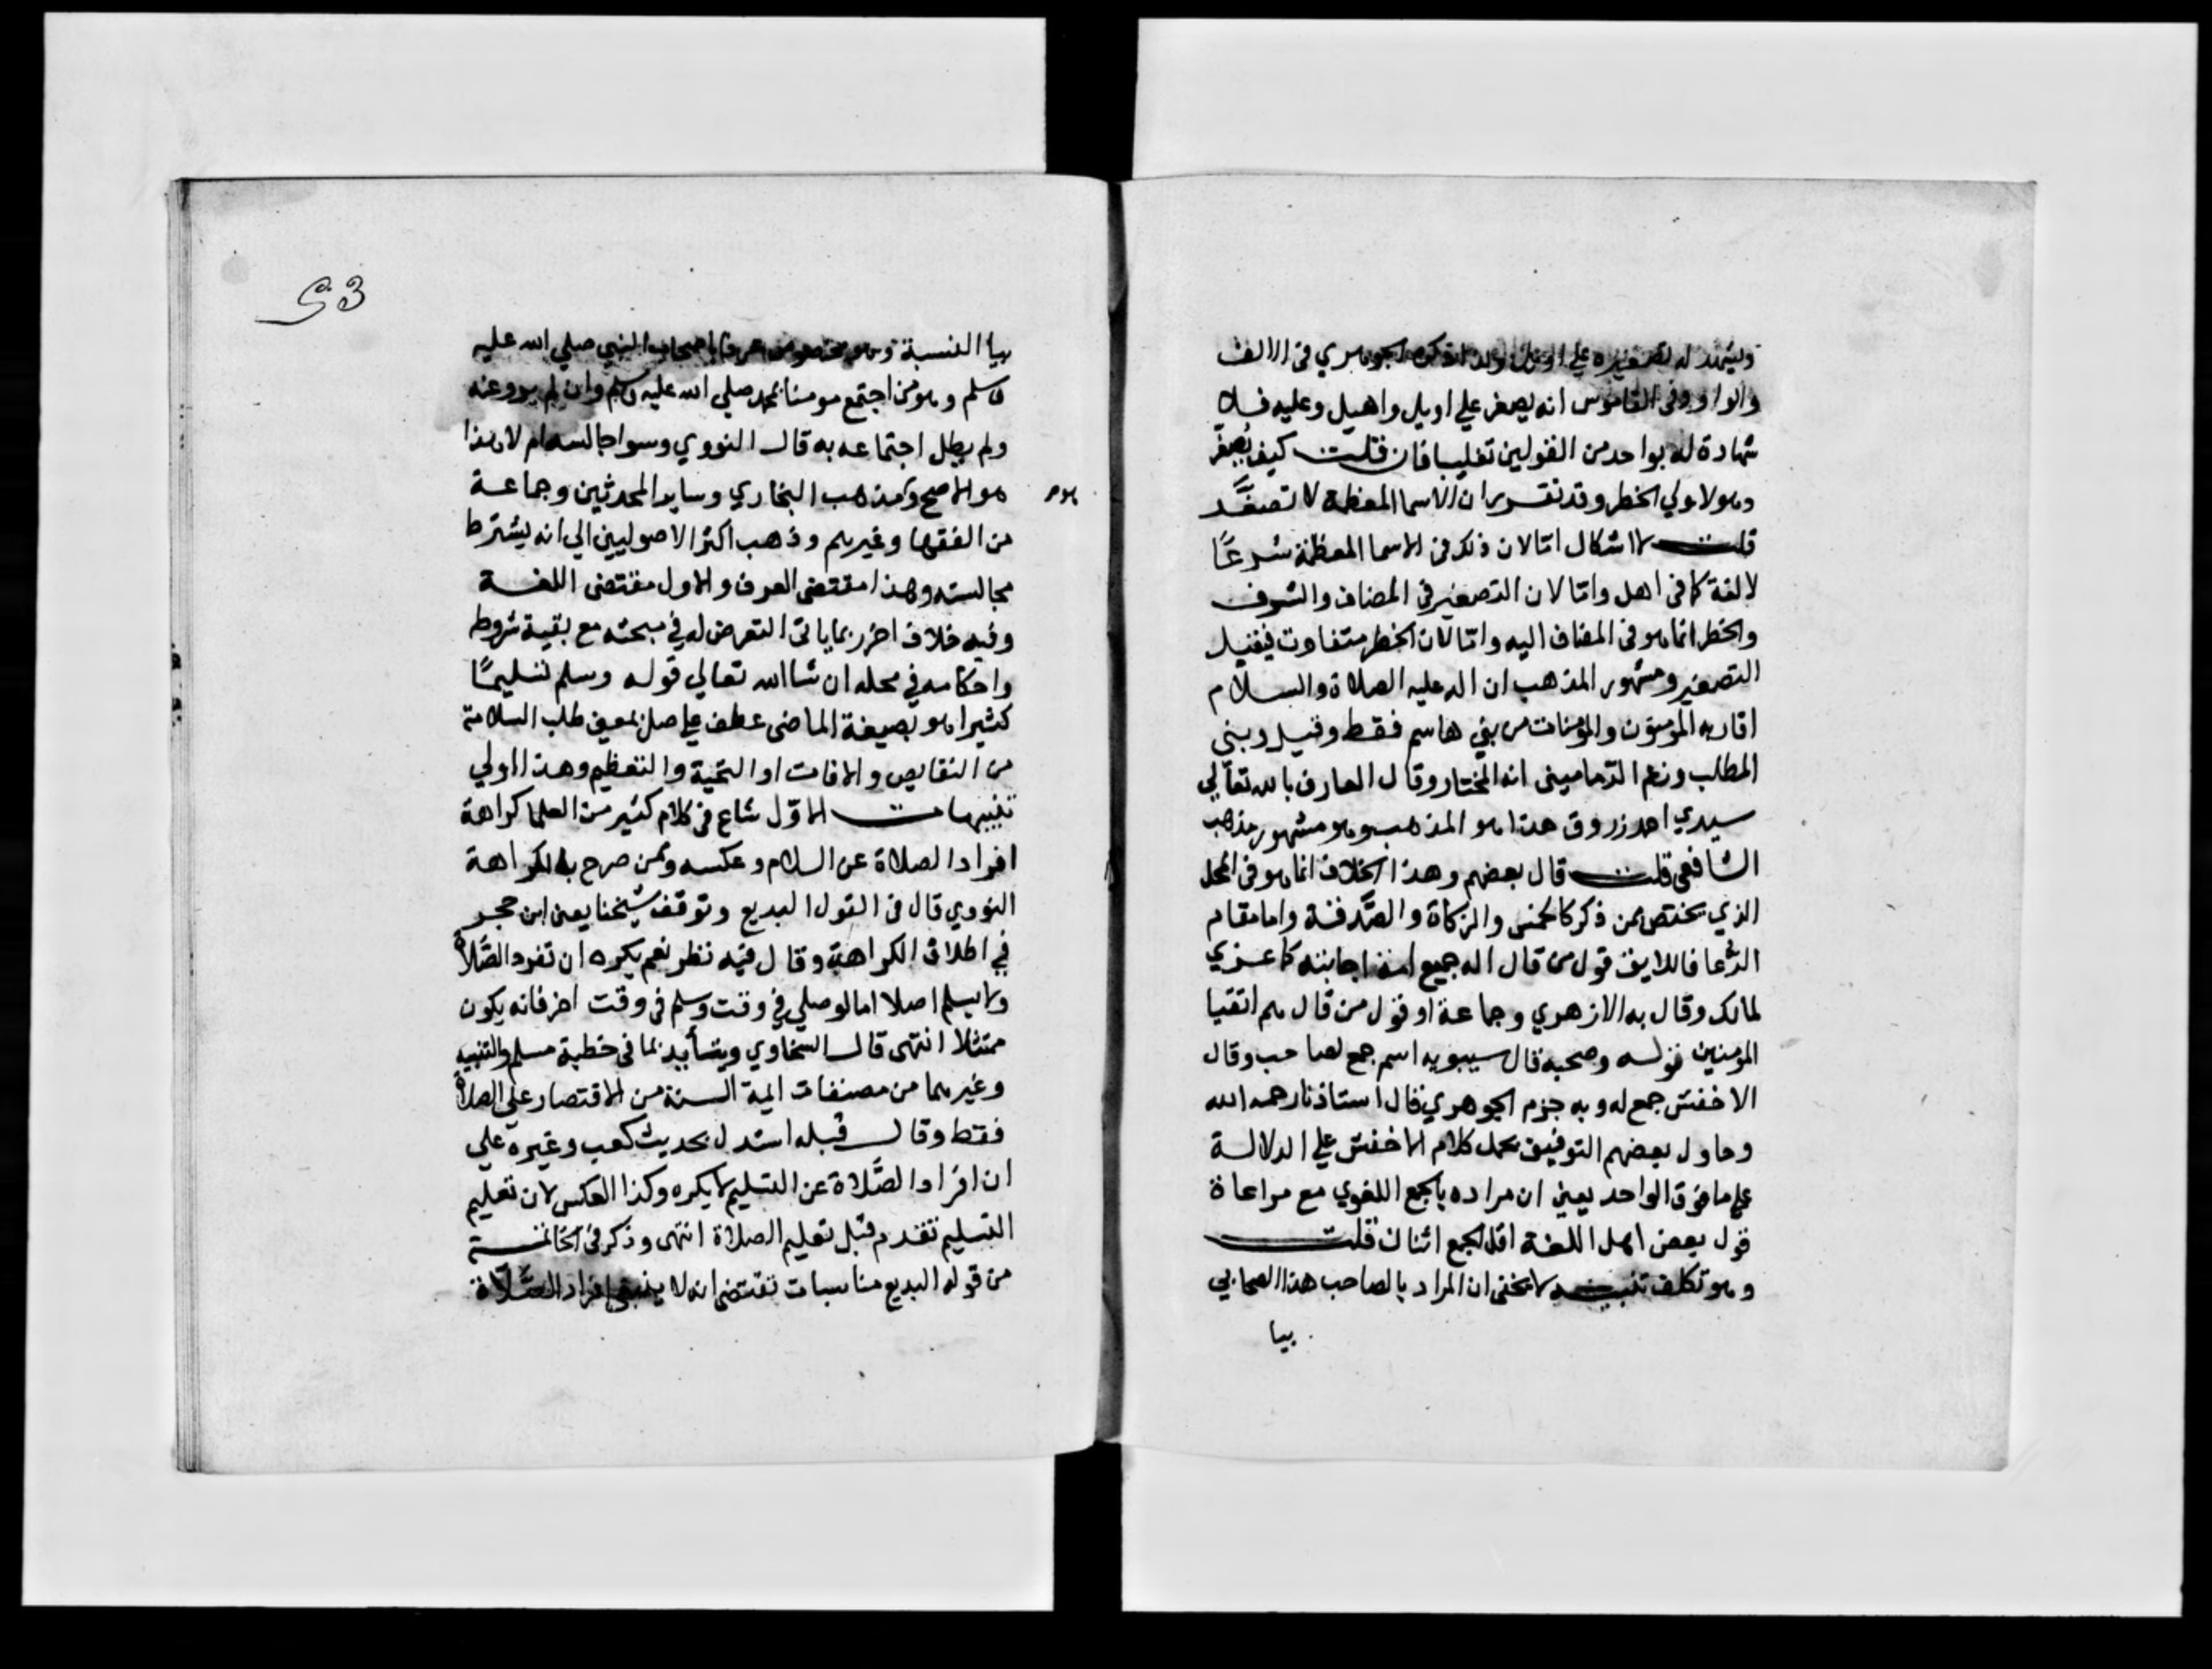 ويشهد له تصغيره على اويل ولذا ذكره الجوهري في الالف
والواو وفي القاموس انه يصغر علي اويل واهيل وعليه فلا
شهادة له بواحد من القولين تغليبا فان قلت كيف يصغر
وهو لاولي الخطر وقد تقرر ان الاسما المعظمة لا تصغر
قلت لا اشكال اما لان ذلك في الاسما المعظمة شرعًا
لا لغة كما في اهل واما لان التصغير في المضاف والشرف
والخطر انما هو في المضاف اليه واما لان الخطر متفاوت فيقبل
التصغير ومشهور المذهب ان اله عليه الصلاة والسلام
اقاربه المومنون والمومنات من بني هاشم فقط وقيل وبني
المطلب وزعم الدماميني انه المختار وقال العارف بالله تعالي
سيدي احمد زروق هذا هو المذهب وهو مشهور مذهب
الشافعي قلت قال بعضهم وهذا الخلاف انما هو في المحل
الذي يختص بمن ذكر كالخمس والزكاة والصَّدقة واما مقام
الدُّعا فاللايق قول من قال اله جميع امة اجابته كما عزي
لمالك وقال به الازهري وجماعة او قول من قال هم اتقيا
المومنين قوله وصحبه قال سيبويه اسم جمع لصاحب وقال
الاخفش جمع له وبه جزم الجوهري قال استاذنا رحمه الله
وحاول بعضهم التوفيق بحمل كلام الاخفش علي الدلالة
علي ما فوق الواحد يعني ان مراده بالجمع اللغوي مع مراعاة
قول بعض اهل اللغة اقل الجمع اثنان قلت
وهو تكلف تنبيه لا يخفى ان المراد بالصاحب هذا الصحابي
بيا
53
بيا النسبة وهو مختص عرفا باصحاب النبي صلي الله عليه
وسلم وهو من اجتمع مومنا بمحمد صلي الله عليه وسلم وان لم يرو عنه
ولم يطل اجتماعه به قال النووي وسوا جالسه ام لا وهذا
هو الاصح ومذهب البخاري وساير المحدثين وجماعة
من الفقها وغيرهم وذهب اكثر الاصوليين الي انه يشترط
مجالسته وهذا مقتضى العرف والاول مقتضى اللغة
وفيه خلاف اخر ربما ياتي التعرض له في مبحثه مع بقية شروط
واحكامه في محله ان شا الله تعالي قوله وسلم تسليمًا
كثيرا هو بصيغة الماضي عطف علي صلي بمعني طلب السلامة
من النقايص والافات او التحية والتعظيم وهذا اولي
تنبيهات الاوّل شاع في كلام كثير من العلما كراهة
افراد الصلاة عن السلام وعكسه وممن صرح بالكراهة
النووي قال في القول البديع وتوقف شيخنا يعني ابن حجر
في اطلاق الكراهة وقال فيه نظر نعم يكره ان تفرد الصَّلاة
ولا يسلم اصلا اما لو صلي في وقت وسلم في وقت اخر فانه يكون
ممتثلا انتهى قال السخاوي ويتأيد بما في خطبة مسلم والتنبيه
وغيرهما من مصنفات ايمة السنة من الاقتصار علي الصلاة
فقط وقال قبله استدل بحديث كعب وغيره علي
ان افراد الصَّلاة عن التسليم لا يكره وكذا العكس لان تعليم
التسليم تقدم قبل تعليم الصلاة انتهى وذكر في الخاتمة
من قوله البديع مناسبات تقتضي انه لا ينبغي افراد الصَّلاة